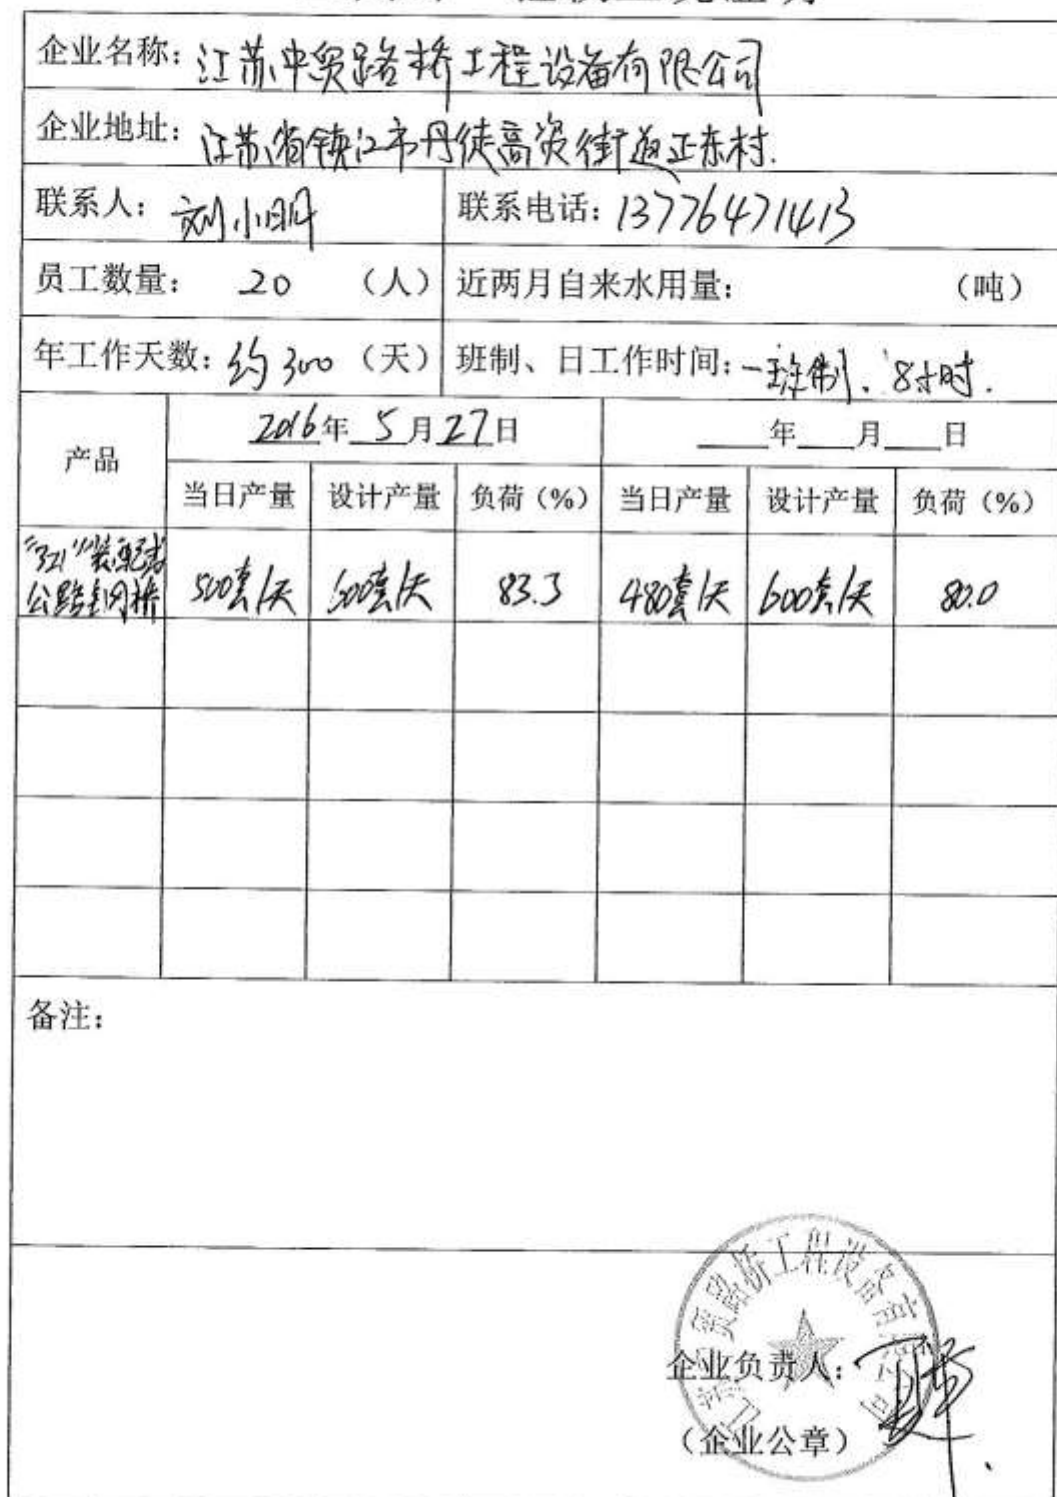 企业名称：江苏中贸路桥工程设备有限公司
企业地址：江苏省镇江市丹徒高资街道正东村.
联系人：刘小明 联系电话：13776471413
员工数量： 20 （人） 近两月自来水用量： （吨）
年工作天数：约300（天） 班制、日工作时间：一班制、8小时.
产品 2016年 5月27日 ___年___月___日
当日产量 设计产量 负荷（%） 当日产量 设计产量 负荷（%）
"321"装配式
公路钢桥 500套/天 600套/天 83.3 480套/天 600套/天 80.0
备注：
江苏中贸路桥工程设备有限公司
企业负责人：
（企业公章）